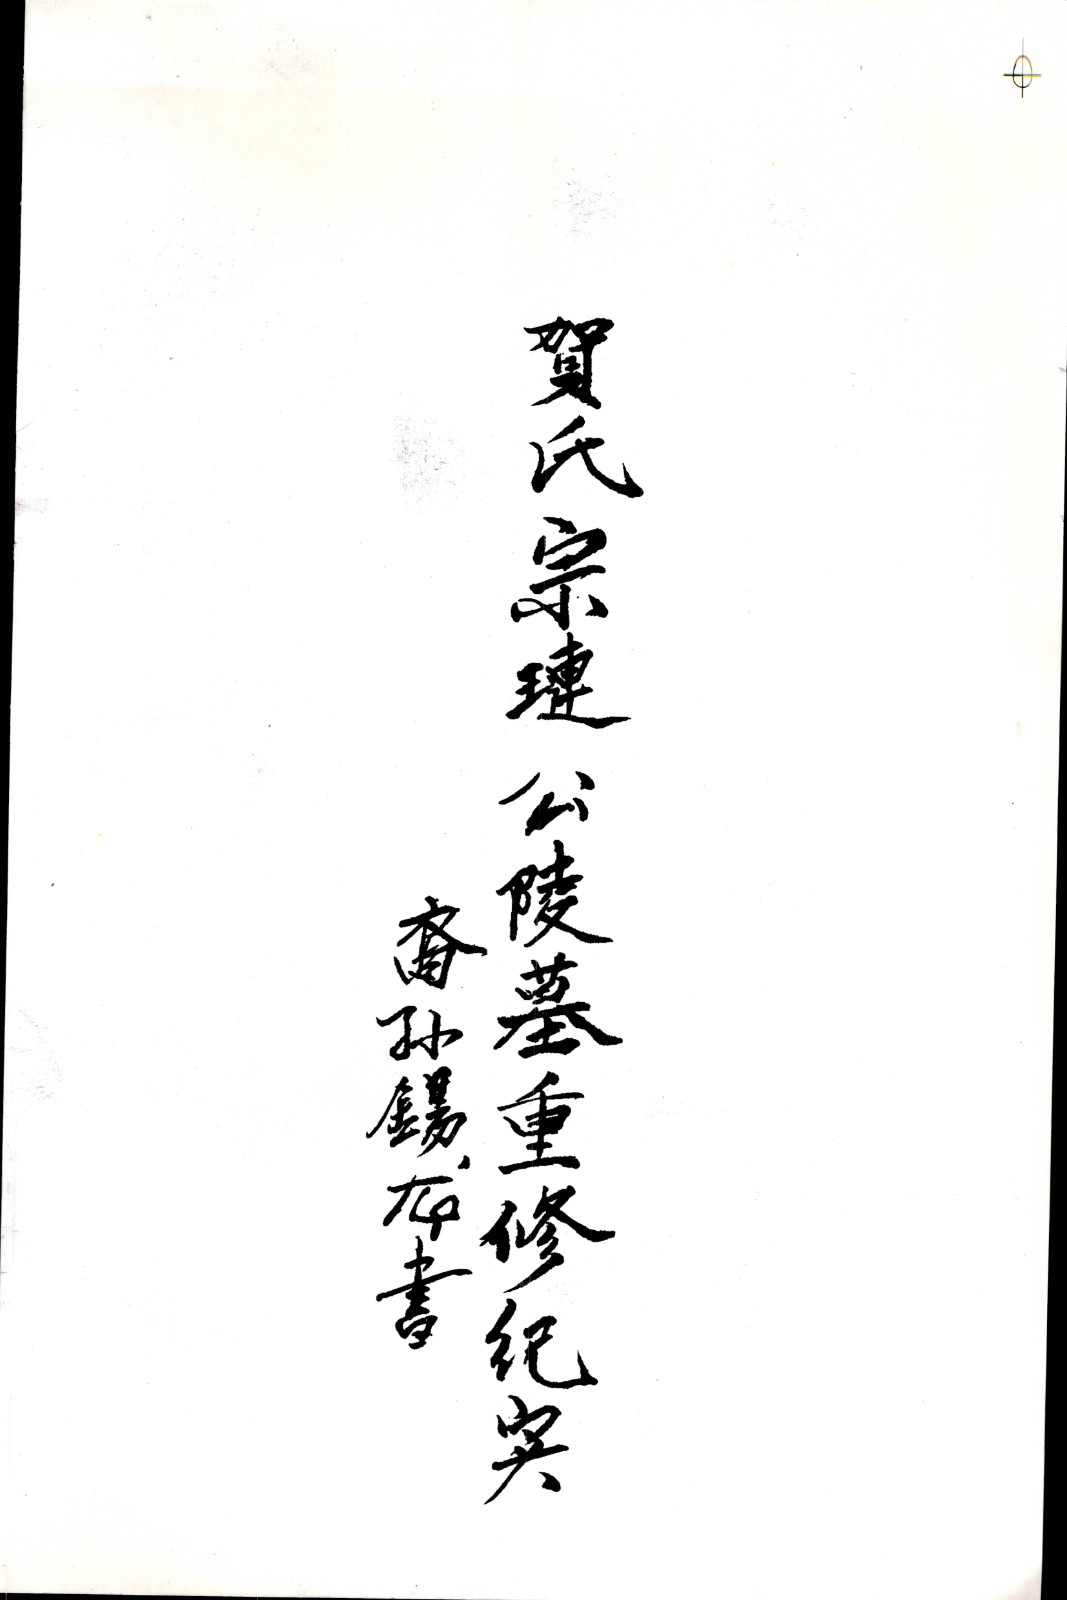 賀氏宗璉公陵墓重修紀实
裔孙錫存書